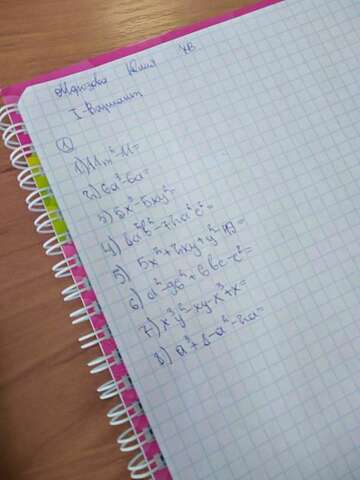 Морозова Юлия 7В
I-Вариант
①
1) 11m²-11=
2) 6a³-6a=
3) 5x³-5xy²=
4)
5) 5x²+2xy+y²
6) a²-9b²+6bc-c²=
7) x³y²-xy-x³+x=
8) a³+8-a²-2a=